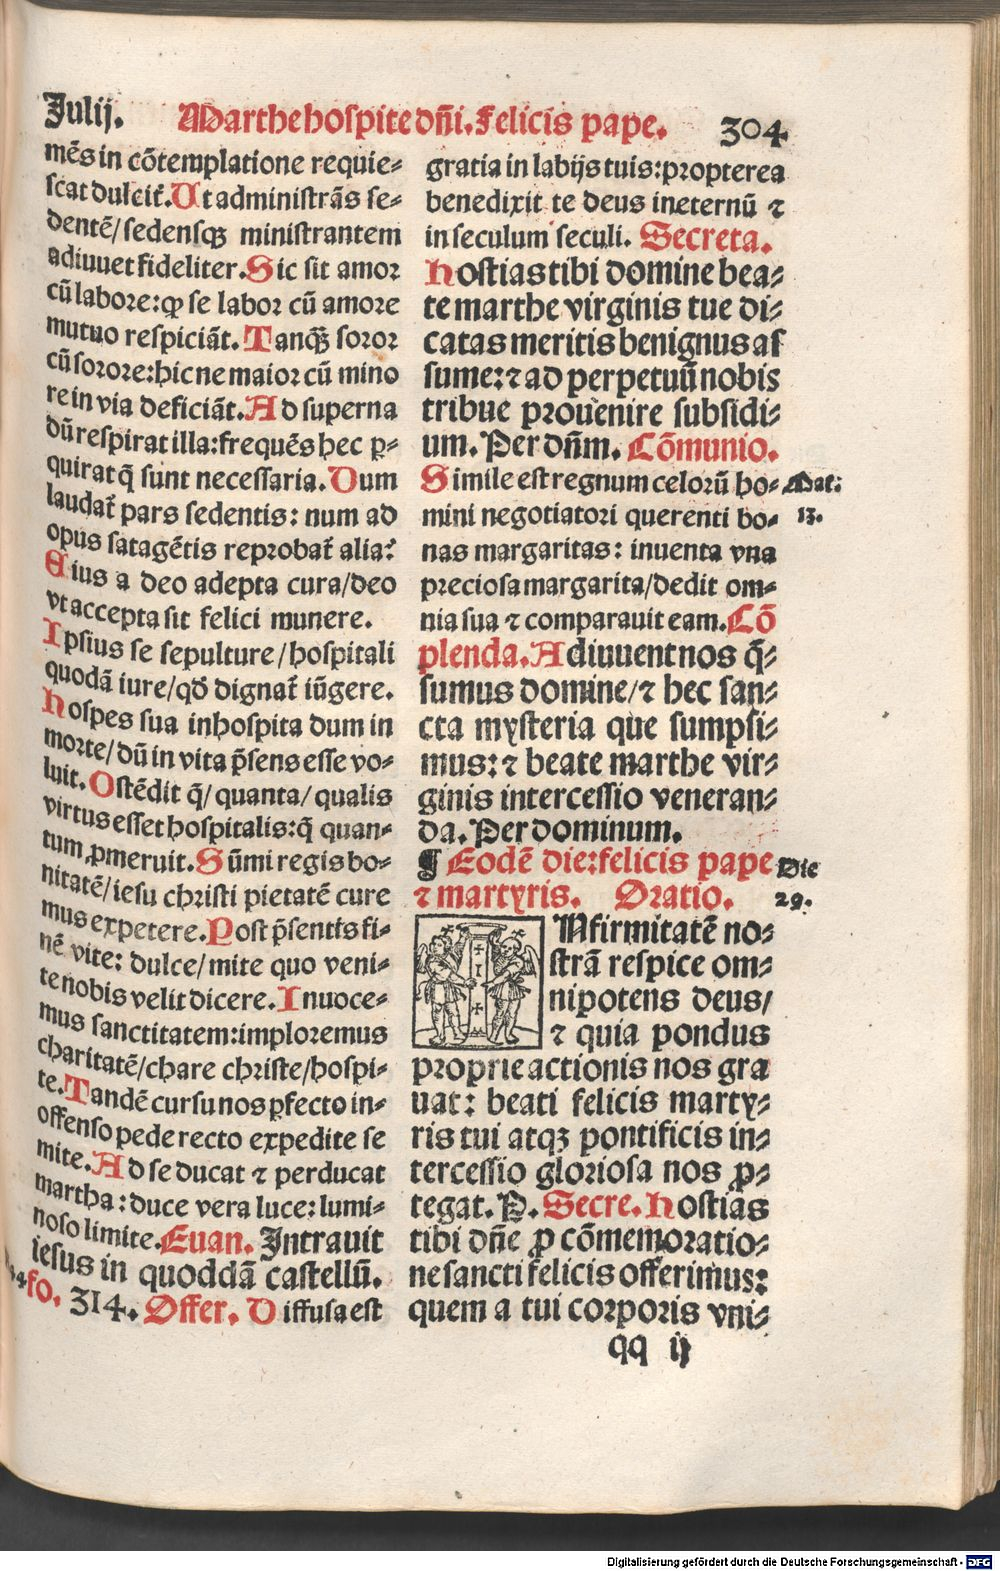 Julij. Marthe hospite dñi. Felicis pape. 304.
mẽs in cõtemplatione requie⸗
scat dulcit̃. Ut administrãs se⸗
dentẽ/ sedensqꝫ ministrantem
adiuuet fideliter. Sic sit amor
cũ labore: ꝙ se labor cũ amore
mutuo respiciãt. Tanqꝫ soror
cũ sorore: hic ne maior cũ mino
re in via deficiãt. Ad superna
dũ respirat illa: frequẽs hec ꝑ⸗
quirat q̃ sunt necessaria. Dum
laudat̃ pars sedentis: num ad
opus satagẽtis reprobat̃ alia?
Eius a deo adepta cura/deo
vt accepta sit felici munere.
Ipsius se sepulture/hospitali
quodã iure/qđ dignat̃ iũgere.
Hospes sua inhospita dum in
morte/dũ in vita p̃sens esse vo⸗
luit. Ostẽdit q̃/ quanta/ qualis
virtus esset hospitalis: q̃ quan⸗
tum ꝓmeruit. Sũmi regis bo⸗
nitatẽ/iesu christi pietatẽ cure
mus expetere. Post p̃sent̃s fi⸗
nẽ vite: dulce/mite quo veni⸗
te nobis velit dicere. Inuoce⸗
mus sanctitatem: imploremus
charitatẽ/chare christe/hospi⸗
te. Tandẽ cursu nos ꝑfecto in⸗
offenso pede recto expedite se
mite. Ad se ducat ⁊ perducat
martha: duce vera luce: lumi⸗
noso limite. Euan. Intrauit
iesus in quoddã castellũ.
fo. 314. Offer. Diffusa est
gratia in labijs tuis: propterea
benedixit te deus in eternũ ⁊
in seculum seculi. Secreta.
Hostias tibi domine bea⸗
te marthe virginis tue di⸗
catas meritis benignus as
sume: ⁊ ad perpetuũ nobis
tribue prouenire subsidi⸗
um. Per dñm. Cõmunio.
Simile est regnum celorũ ho⸗ Mat.
mini negotiatori querenti bo⸗ 13.
nas margaritas: inuenta vna
preciosa margarita/dedit om⸗
nia sua ⁊ comparauit eam. Cõ
plenda. Adiuuent nos q̃⸗
sumus domine/⁊ hec san⸗
cta mysteria que sumpsi⸗
mus: ⁊ beate marthe vir⸗
ginis intercessio veneran⸗
da. Per dominum.
¶ Eodẽ die: felicis pape Die
⁊ martyris. Oratio. 29.
INfirmitatẽ no⸗
strã respice om⸗
nipotens deus/
⁊ quia pondus
proprie actionis nos gra
uat: beati felicis marty⸗
ris tui atqꝫ pontificis in⸗
tercessio gloriosa nos ꝓ⸗
tegat. P. Secre. Hostias
tibi dñe ꝓ cõmemoratio⸗
ne sancti felicis offerimus:
quem a tui corporis vni⸗
qq ij
Digitalisierung gefördert durch die Deutsche Forschungsgemeinschaft - DFG